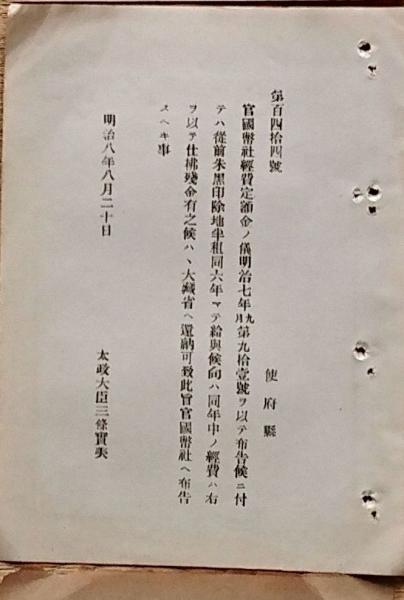 第百四拾四號
使府縣
官國幣社經費定額金ノ儀明治七年九月第九拾壹號ヲ以テ布告候ニ付
テハ從前朱黑印除地半租同六年マテ給與候向ハ同年中ノ經費ハ右
ヲ以テ仕拂殘金有之候ハヽ大藏省ヘ還納可致此旨官國幣社ヘ布告
スヘキ事
明治八年八月二十日
太政大臣三條實美